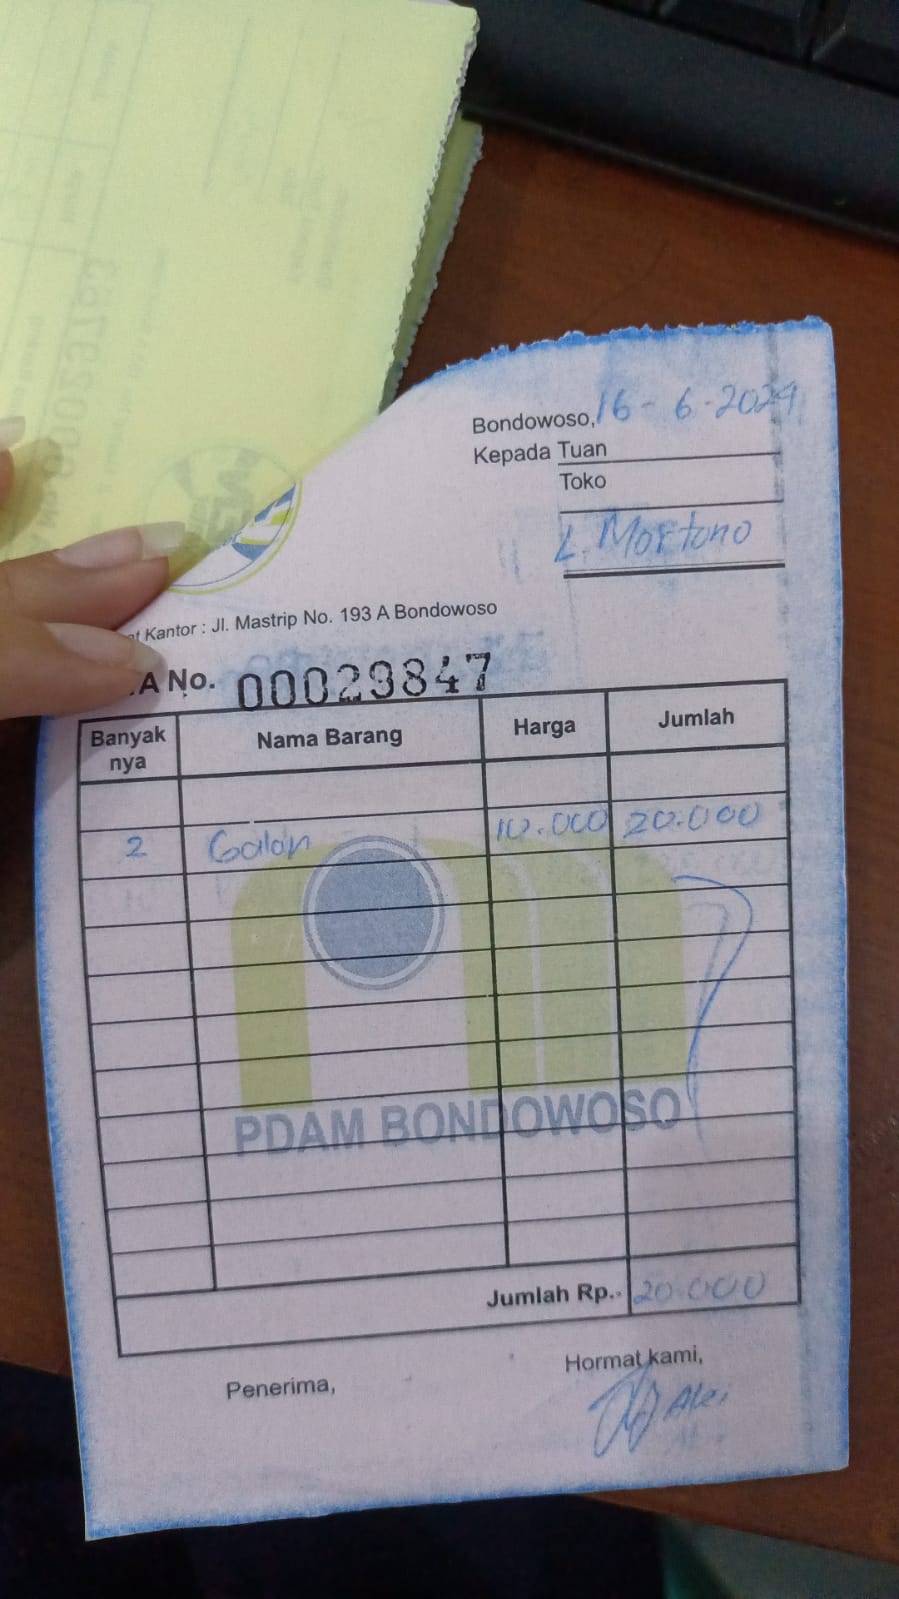 Bondowoso, 16-6-2024
Kepada Tuan
Toko
L. Martono
Kantor : Jl. Mastrip No. 193 A Bondowoso
A No. 00029847
Banyak nya Nama Barang Harga Jumlah
2 Galon 10.000 20.000
PDAM BONDOWOSO
Jumlah Rp. 20.000
Penerima, Hormat kami,